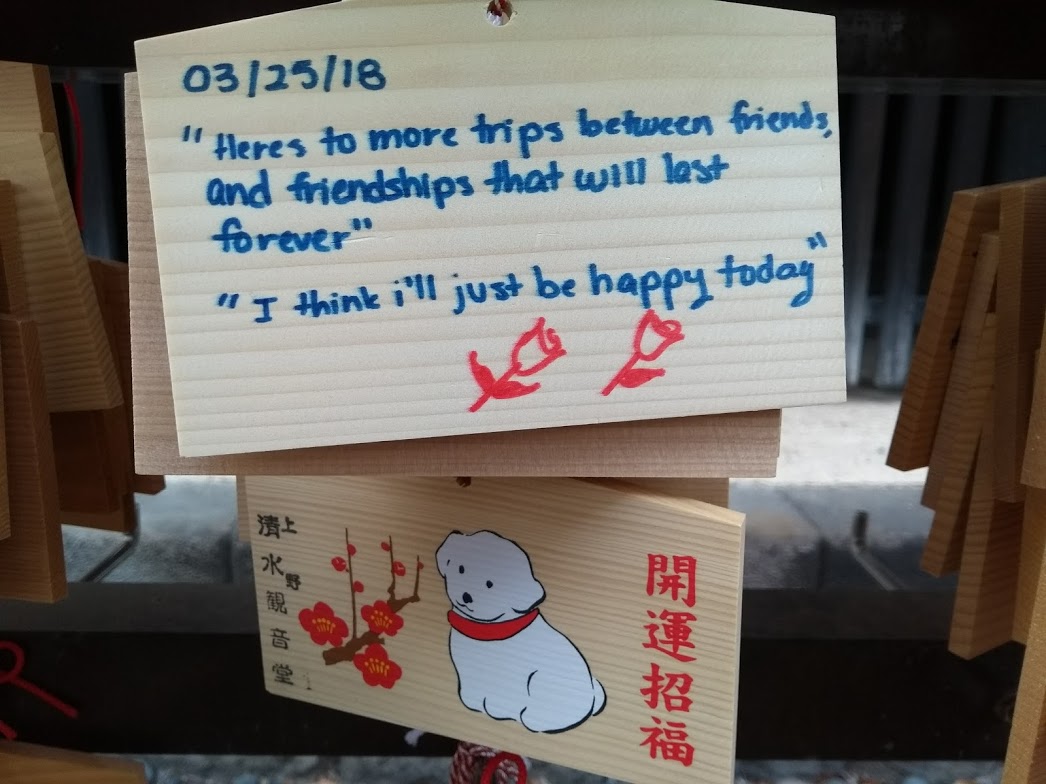 03/25/18
"Heres to more trips between friends,
and friendships that will last
forever"
"I think i'll just be happy today"
上野
清水観音堂
開運招福